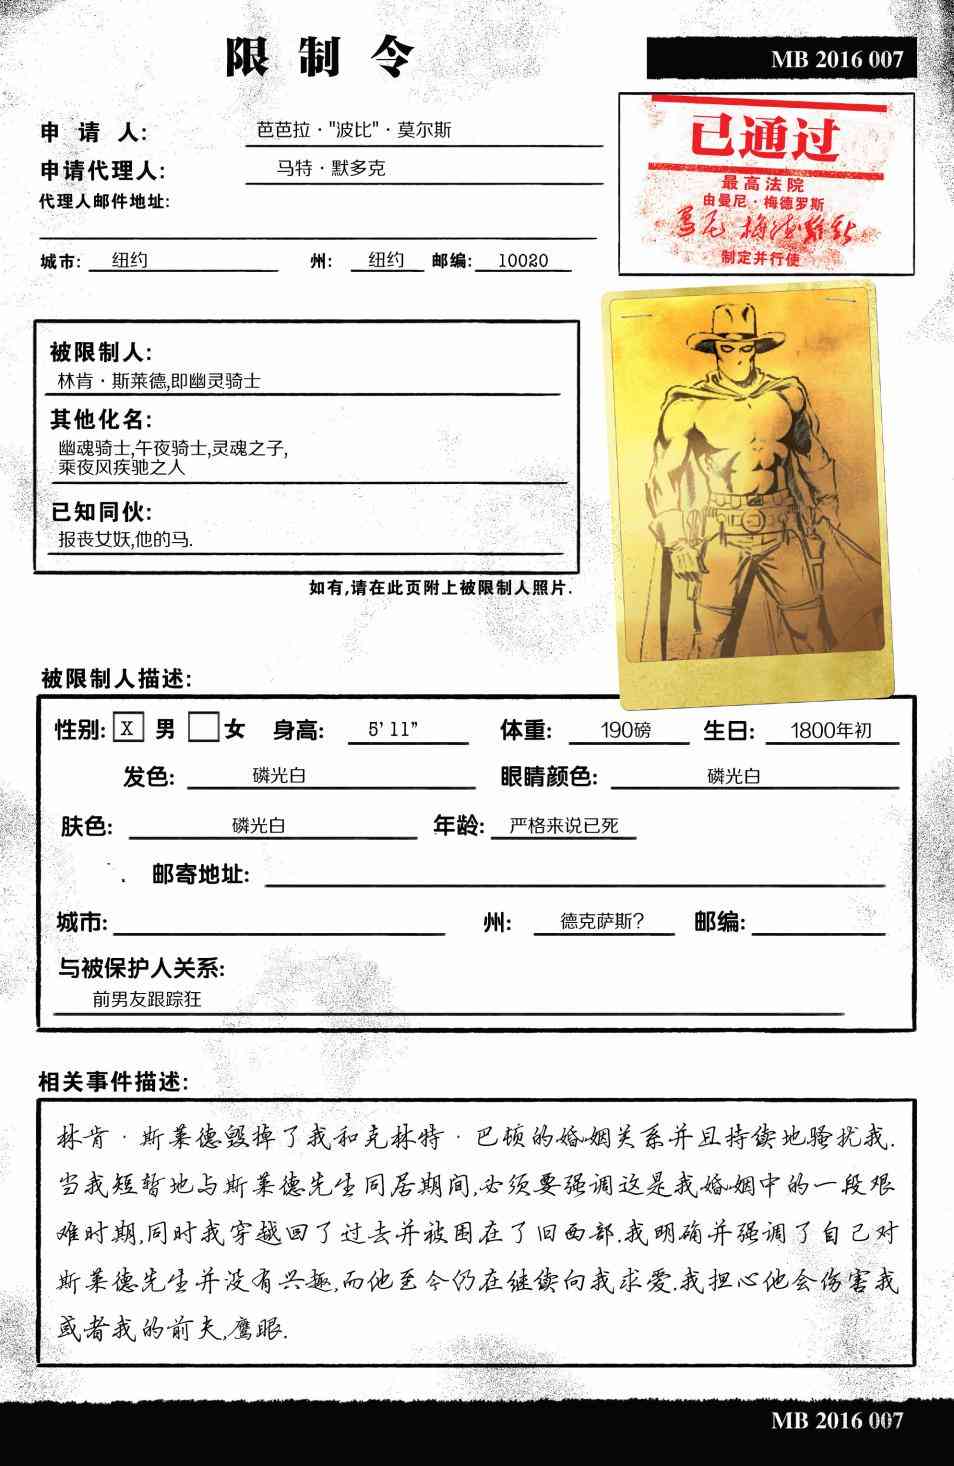 限制令
MB 2016 007
申请人: 芭芭拉·"波比"·莫尔斯
申请代理人: 马特·默多克
代理人邮件地址:
城市: 纽约 州: 纽约 邮编: 10020
已通过
最高法院
由曼尼·梅德罗斯
曼尼 梅德罗斯
制定并行使
被限制人:
林肯·斯莱德,即幽灵骑士
其他化名:
幽魂骑士,午夜骑士,灵魂之子,
乘夜风疾驰之人
已知同伙:
报丧女妖,他的马.
如有,请在此页附上被限制人照片.
被限制人描述:
性别: X 男 女 身高: 5' 11" 体重: 190磅 生日: 1800年初
发色: 磷光白 眼睛颜色: 磷光白
肤色: 磷光白 年龄: 严格来说已死
邮寄地址:
城市: 州: 德克萨斯? 邮编:
与被保护人关系:
前男友跟踪狂
相关事件描述:
林肯·斯莱德毁掉了我和克林特·巴顿的婚姻关系并且持续地骚扰我.
当我短暂地与斯莱德先生同居期间,必须要强调这是我婚姻中的一段艰
难时期,同时我穿越回了过去并被困在了旧西部.我明确并强调了自己对
斯莱德先生并没有兴趣,而他至今仍在继续向我求爱.我担心他会伤害我
或者我的前夫,鹰眼.
MB 2016 007